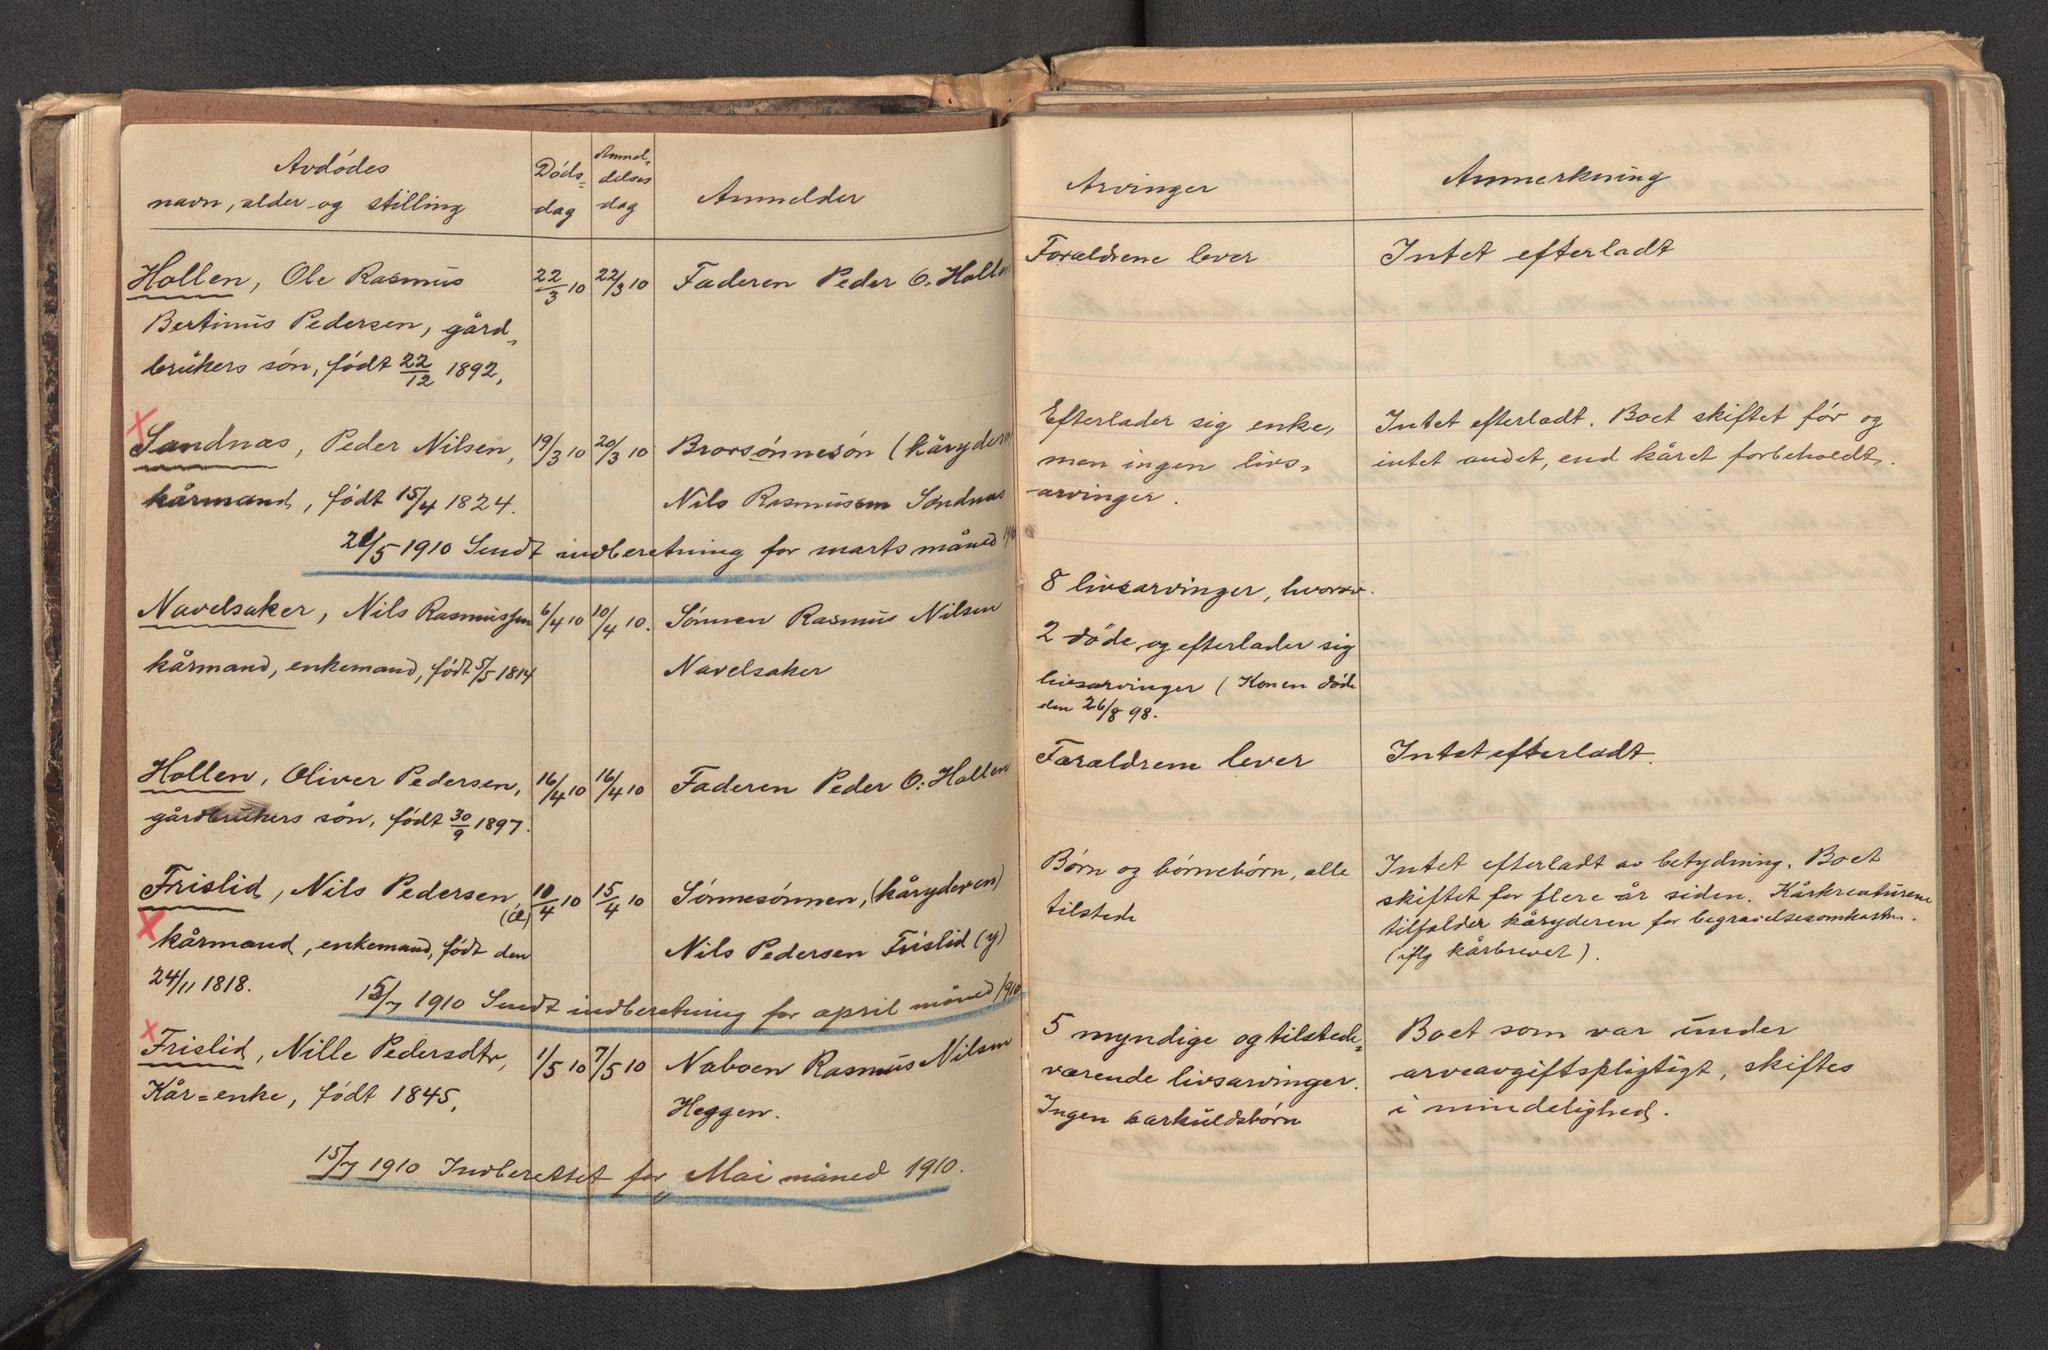 Avdödes
navn, alder og stilling
Döds-
dag
Anmel-
delses
dag
Anmelder
Arvinger
Anmerkning
Hollen, Ole Rasmus
Bertinus Pedersen, gård-
brukers sön, födt 22/12 1892,
22/3 10
22/3 10
Faderen Peder O. Hollen
Forældrene lever
Intet efterladt
Sandnæs, Peder Nilsen,
kårmand, födt 15/4 1824.
19/3 10
20/3 10
Brorsönnesön (kåryderen)
Nils Rasmussen Sandnæs
Efterlader sig enke,
men ingen livs-
arvinger.
Intet efterladt. Boet skiftet för og
intet andet, end kåret forbeholdt.
21/5 1910 Sendt indberetning for marts måned 1910
Navelsaker, Nils Rasmussen
kårmand, enkemand, födt 5/5 1814
6/4 10
10/4 10.
Sönnen Rasmus Nilsen
Navelsaker
8 livsarvinger, hvorav
2 döde, og efterlader sig
livsarvinger (Konen döde
den 26/8 98.
Hollen, Oliver Pedersen,
gårdbrukers sön, födt 30/9 1897.
16/4 10
16/4 10
Faderen Peder O. Hollen
Forældrene lever
Intet efterladt.
Frislid, Nils Pedersen,
(æ)
kårmand, enkemand, födt den
24/11 1818.
10/4 10
15/4 10
Sönnesönnen, (kåryderen)
Nils Pedersen Frislid (y)
Börn og börnebörn, alle
tilstede
Intet efterladt av betydning. Boet
skiftet for flere år siden. Kårkreaturene
tilfalder kåryderen for begravelsesomkostn.
(iflg kårbrevet).
15/7 1910 Sendt indberetning for april måned 1910
Frislid, Nille Pedersdtr,
Kår-enke, födt 1845,
1/5 10
7/5 10
Naboen Rasmus Nilsen
Heggen.
5 myndige og tilstede-
værende livsarvinger.
Ingen særkuldsbörn
Boet som var under
arveavgiftspligtigt, skiftes
i mindelighed.
15/7 1910 Indberettet for Mai måned 1910.